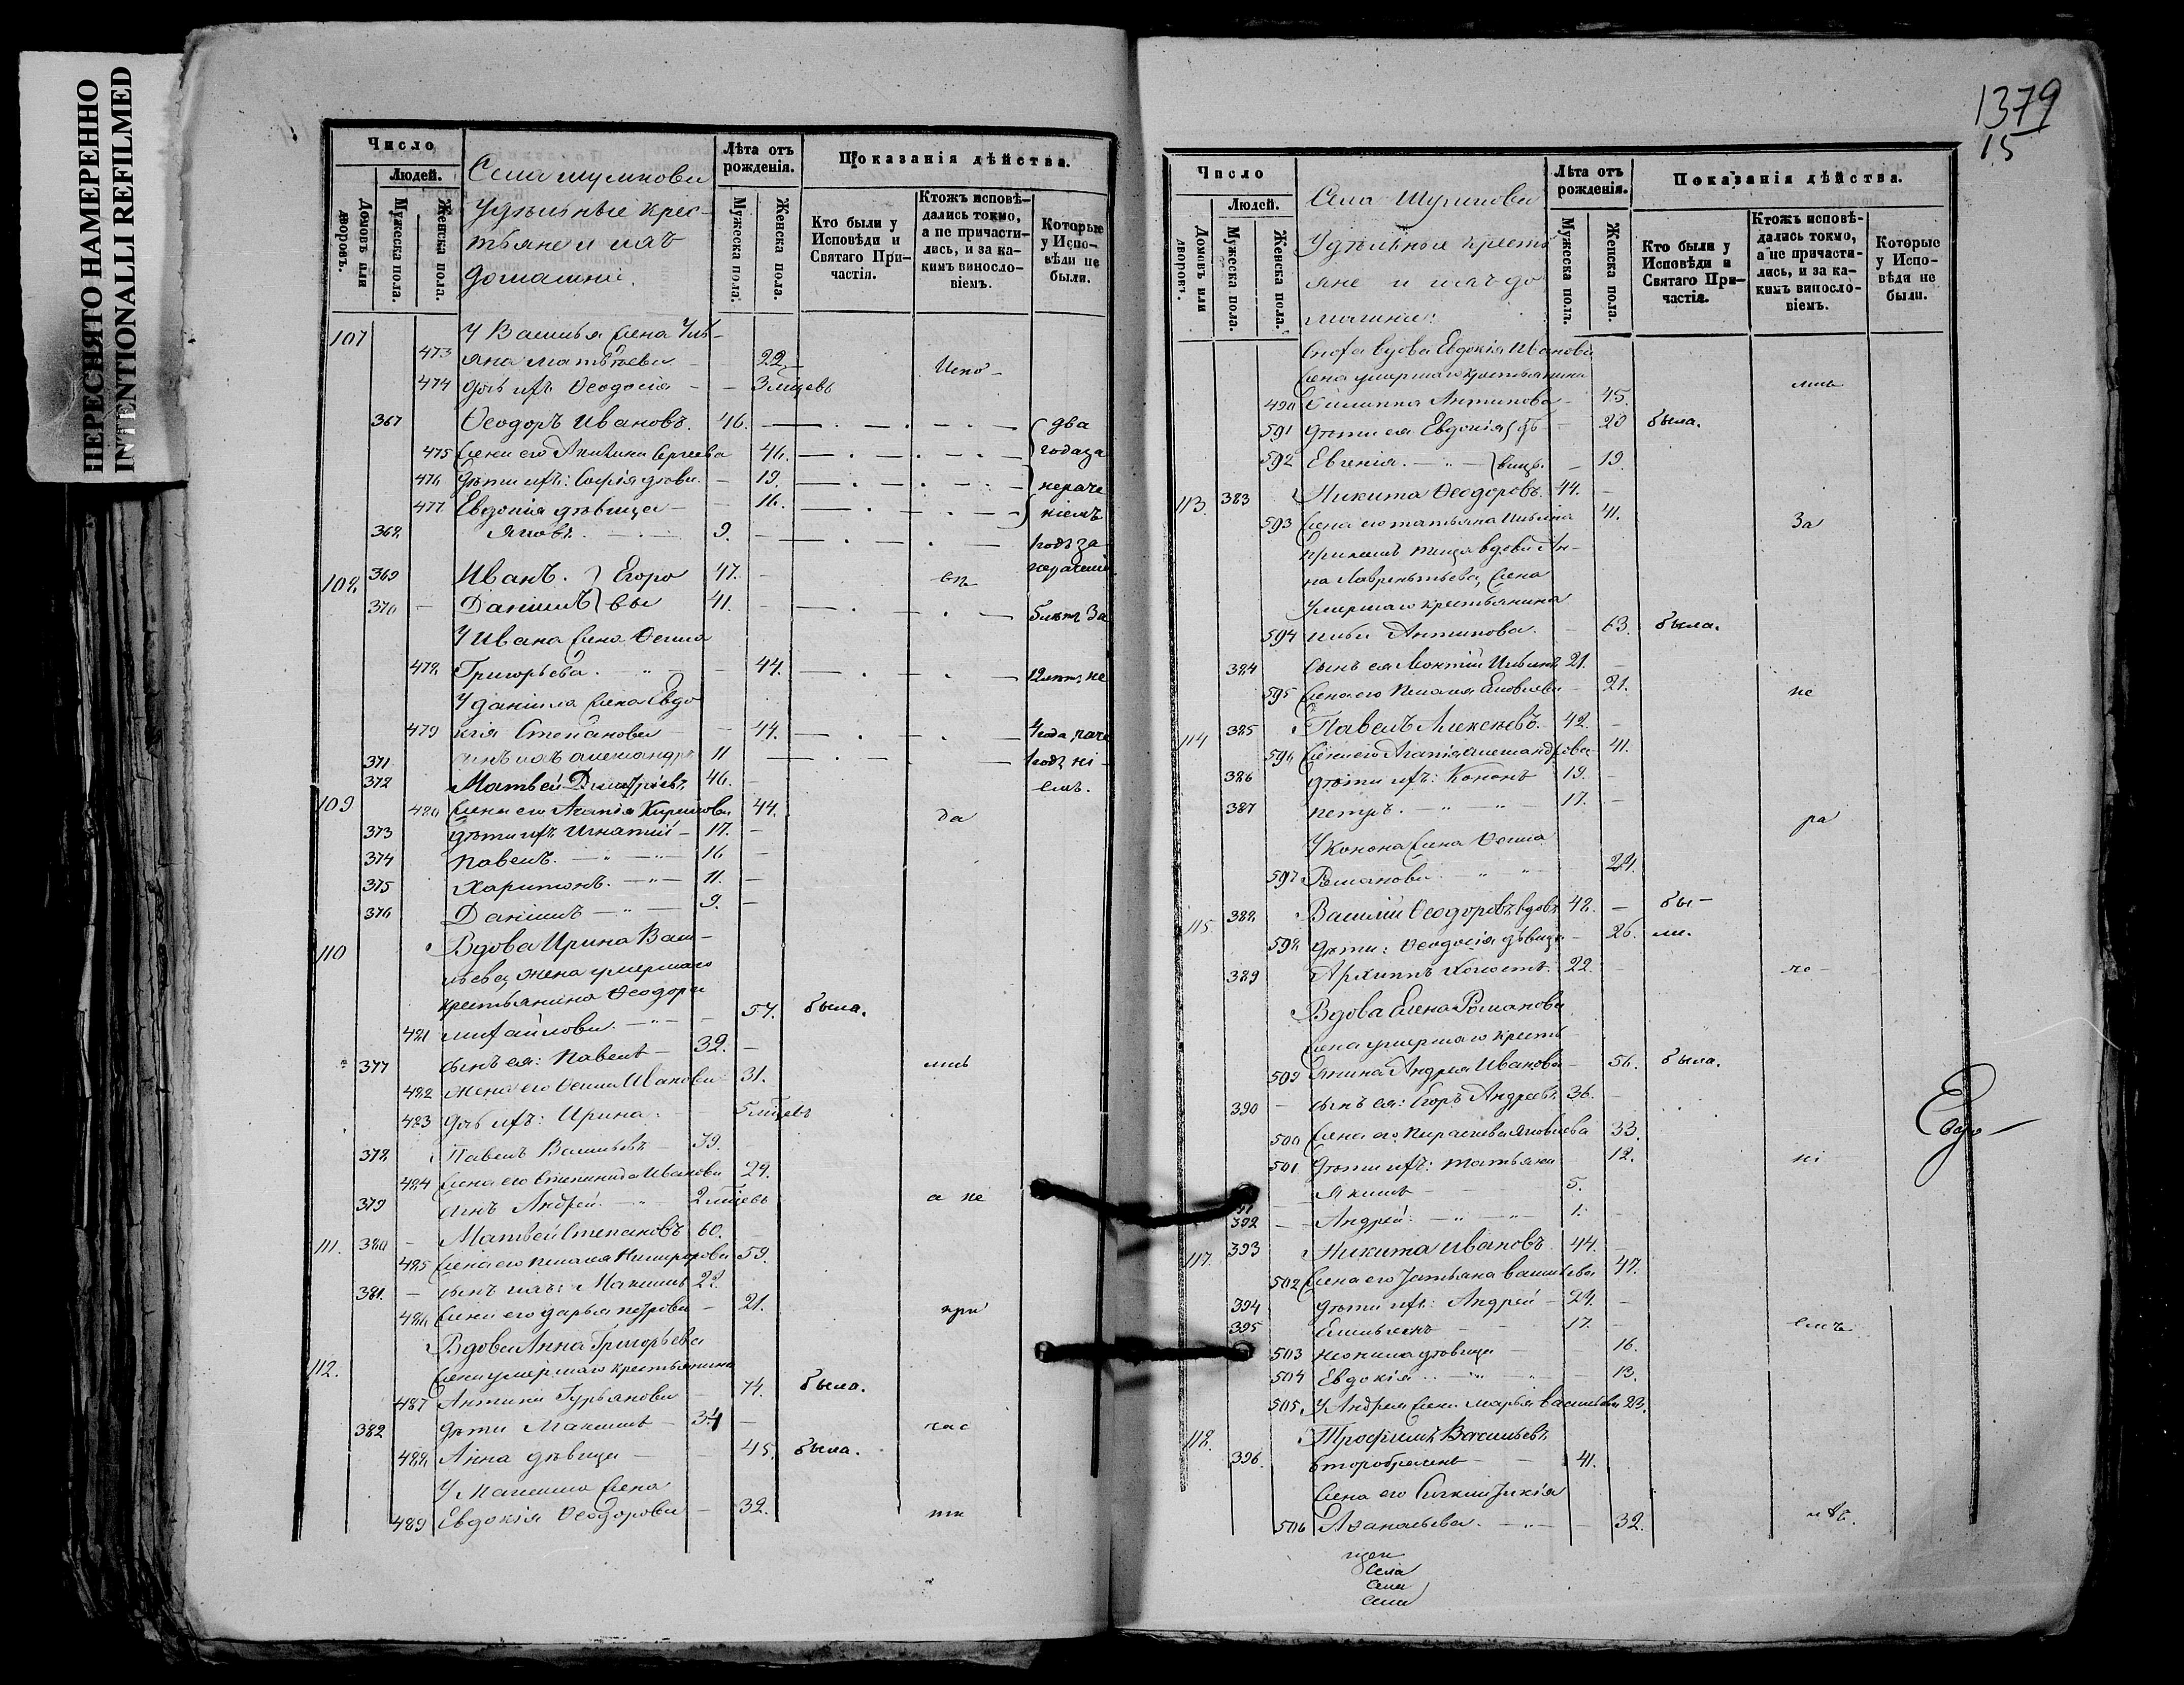 ПЕРЕСНЯТО НАМЕРЕННО
INTENTIONALLI REFILMED
1379
15
Число
Людей.
Домовъ или дворовъ.
Мужеска пола.
Женска пола.
Села
Удѣльные крес-
тьяне и ихъ
домашніе.
Лѣта отъ рожденія.
Мужеска пола.
Женска пола.
Показанія дѣйства.
Кто были у Исповѣди и Святаго При-частія.
Ктожъ исповѣ-дались токмо, а не причасти-лись, и за ка-кимъ виносло-віемъ.
Которые у Испо-вѣди не были.
107 У Василья жена Уль-
473 яна Матвѣева 22
Испо-
474 дочь ихъ Ѳеодосія 3 мѣсяцевъ
367 Ѳеодоръ Ивановъ. 46. два
475 жена его Акилина Сергеева 46. года за
476 дѣти ихъ: Софія дѣви. 19. нераче
477 Евдокія дѣвица 16. ніемъ
368 Яковъ. 9. 1 годъ за
нераченіе
108 369 Иванъ. Егоро 47.
370 Даніилъ вы 41. 5 лѣтъ за
У Ивана жена Ѳекла
478 Григорьева. 44. 12 лѣтъ не
У Даніила жена Евдо
479 кія Степанова 44. 4 года раче
371 сынъ ихъ Александръ 11 1 годъ ні-
372 Матвей Димитріевъ 46. емъ.
109 480 жена его Агапія Кирилова 44.
да
373 дѣти ихъ Игнатій 17.
374 Павелъ. 16
375 Харитонъ. 11.
376 Даніилъ 9.
110 Вдова Ирина Васи-
льева, жена умершаго
крестьянина Ѳеодора
481 Михайлова. 57. была.
377 сынъ ея: Павелъ 32.
лись
482 жена его Ѳекла Иванова 31.
483 дочь ихъ: Ирина. 5 мѣсяцевъ
378 Павелъ Васильевъ 39.
484 жена его Степанида Иванова 29.
379 сынъ Андрей. 2 мѣсяцевъ
а не
111. 380 Матвей Степановъ 60.
485 жена его Пелагея Никифорова 59.
381. сынъ ихъ: Максимъ 22.
486 жена его Дарья Петрова 21.
при
Вдова Анна Григорьева
112. жена умершаго крестьянина
487 Антипы Гурьянова 74. была.
382 дѣти Максимъ 34
час
488 Анна дѣвица 45. была.
У Максима жена
489 Евдокія Ѳеодорова 32.
ти
Число
Людей.
Домовъ или дворовъ.
Мужеска пола.
Женска пола.
Села
Удѣльные кресть
яне и ихъ до
машніе:
Лѣта отъ рожденія.
Мужеска пола.
Женска пола.
Показанія дѣйства.
Кто были у Исповѣди и Святаго При-частія.
Ктожъ исповѣ-дались токмо, а не причасти-лись, и за ка-кимъ винosло-віемъ.
Которые у Испо-вѣди не были.
Сноха вдова Евдокія Иванова
жена умершаго крестьянина
лись
490 Филиппа Антипова 45.
591 дѣти ея Евдокія дѣ 20 была.
592 Евгенія. вицы. 19.
113. 383 Никита Ѳеодоровъ. 44.
593 жена его Татьяна Ильина 41.
За
при нихъ теща вдова Ан-
на Лаврентьева, жена
умершаго крестьянина
594 Ильи Антипова. 63. была.
384 сынъ ея Леонтій Ильинъ 21.
595 жена его Пелагея Яковлева 21.
не
114 385 Павелъ Алексеевъ. 42.
596 жена его Агапія Александрова 41.
386 дѣти ихъ: Кононъ 19.
387 Петръ. 17.
ра
У Конона жена Ѳекла
597 Романова 21.
115 388 Василій Ѳеодоровъ вдовъ 48. бы-
598 дѣти: Ѳеодосія дѣвица 26. ли.
389 Архиппъ холостъ. 22.
че
Вдова Елена Романова
жена умершаго кресть
509 янина Андрея Иванова 56. была.
390 сынъ ея: Егоръ Андреевъ 36.
500 жена его Параскева Яковлева 33.
501 дѣти ихъ: Татьяна 12.
ні
Якимъ 5.
392 Андрей. 1.
117. 393 Никита Ивановъ 44.
502 жена его Татьяна Васильева 47.
394 дѣти ихъ: Андрей 24.
395 Емельянъ 17.
емъ
503 Неонила дѣвица 16.
504 Евдокія 13.
505. У Андрея жена Марья Васильева 23.
118. Трофимъ Васильевъ
396. второбрачный 41.
506 32.
Села
Села
Села